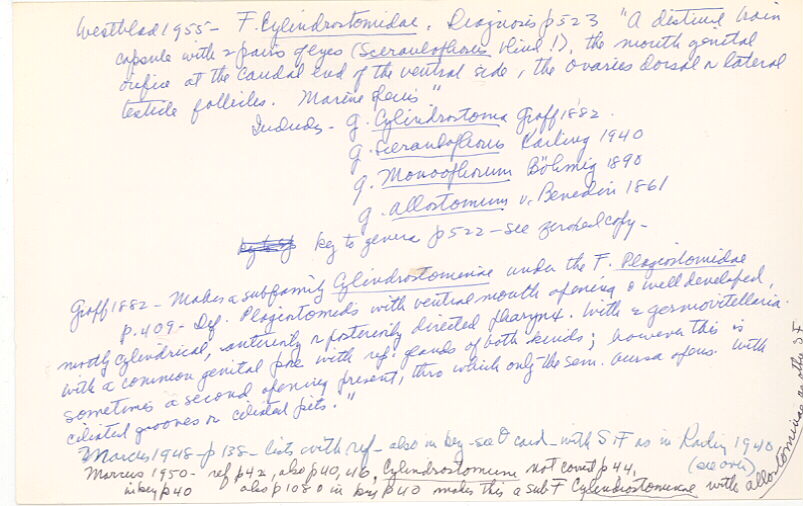 Westblad 1955 - F. Cylindrostomidae. Diagnosis p 523 "A distinct brain
capsule with 2 pairs of eyes (Sceraulophorus blind!), the mouth genital
orifice at the caudal end of the ventral side, the ovaries dorsal or lateral
testicle follicles. Marine forms."
Includes - g. Cylindrostoma Graff 1882.
g. Scerauloph​orus Karling 1940
g. Monoophorum Böhmig 1890
g. allostomum v. Beneden 1861
key to sp key to genera p 522 - see zeroxed copy -
Graff 1882 - Makes a subfamily Cylindrostominae under the F. Plagiostomidae
p. 409 - Def. Plagiostomids with ventral mouth opening & well developed,
mostly cylindrical, anteriorly or posteriorly directed pharynx. With 2 germovitellaria.
With a common genital pore with ref. glands of both kinds; however this is
sometimes a second opening present, thro which only the sem. bursa opens. With
ciliated grooves or ciliated pits."
Marcus 1948 - p 138 - lists with ref - also in key - see card - with SF as in Karling 1940
(see over)
Marcus 1950 - ref p 42, also p 40, 46, Cylindrostomum not court p 44,
in key p 40 also p 108 in key p 40 makes this a sub F Cylindrostominae with allostominae as other SF